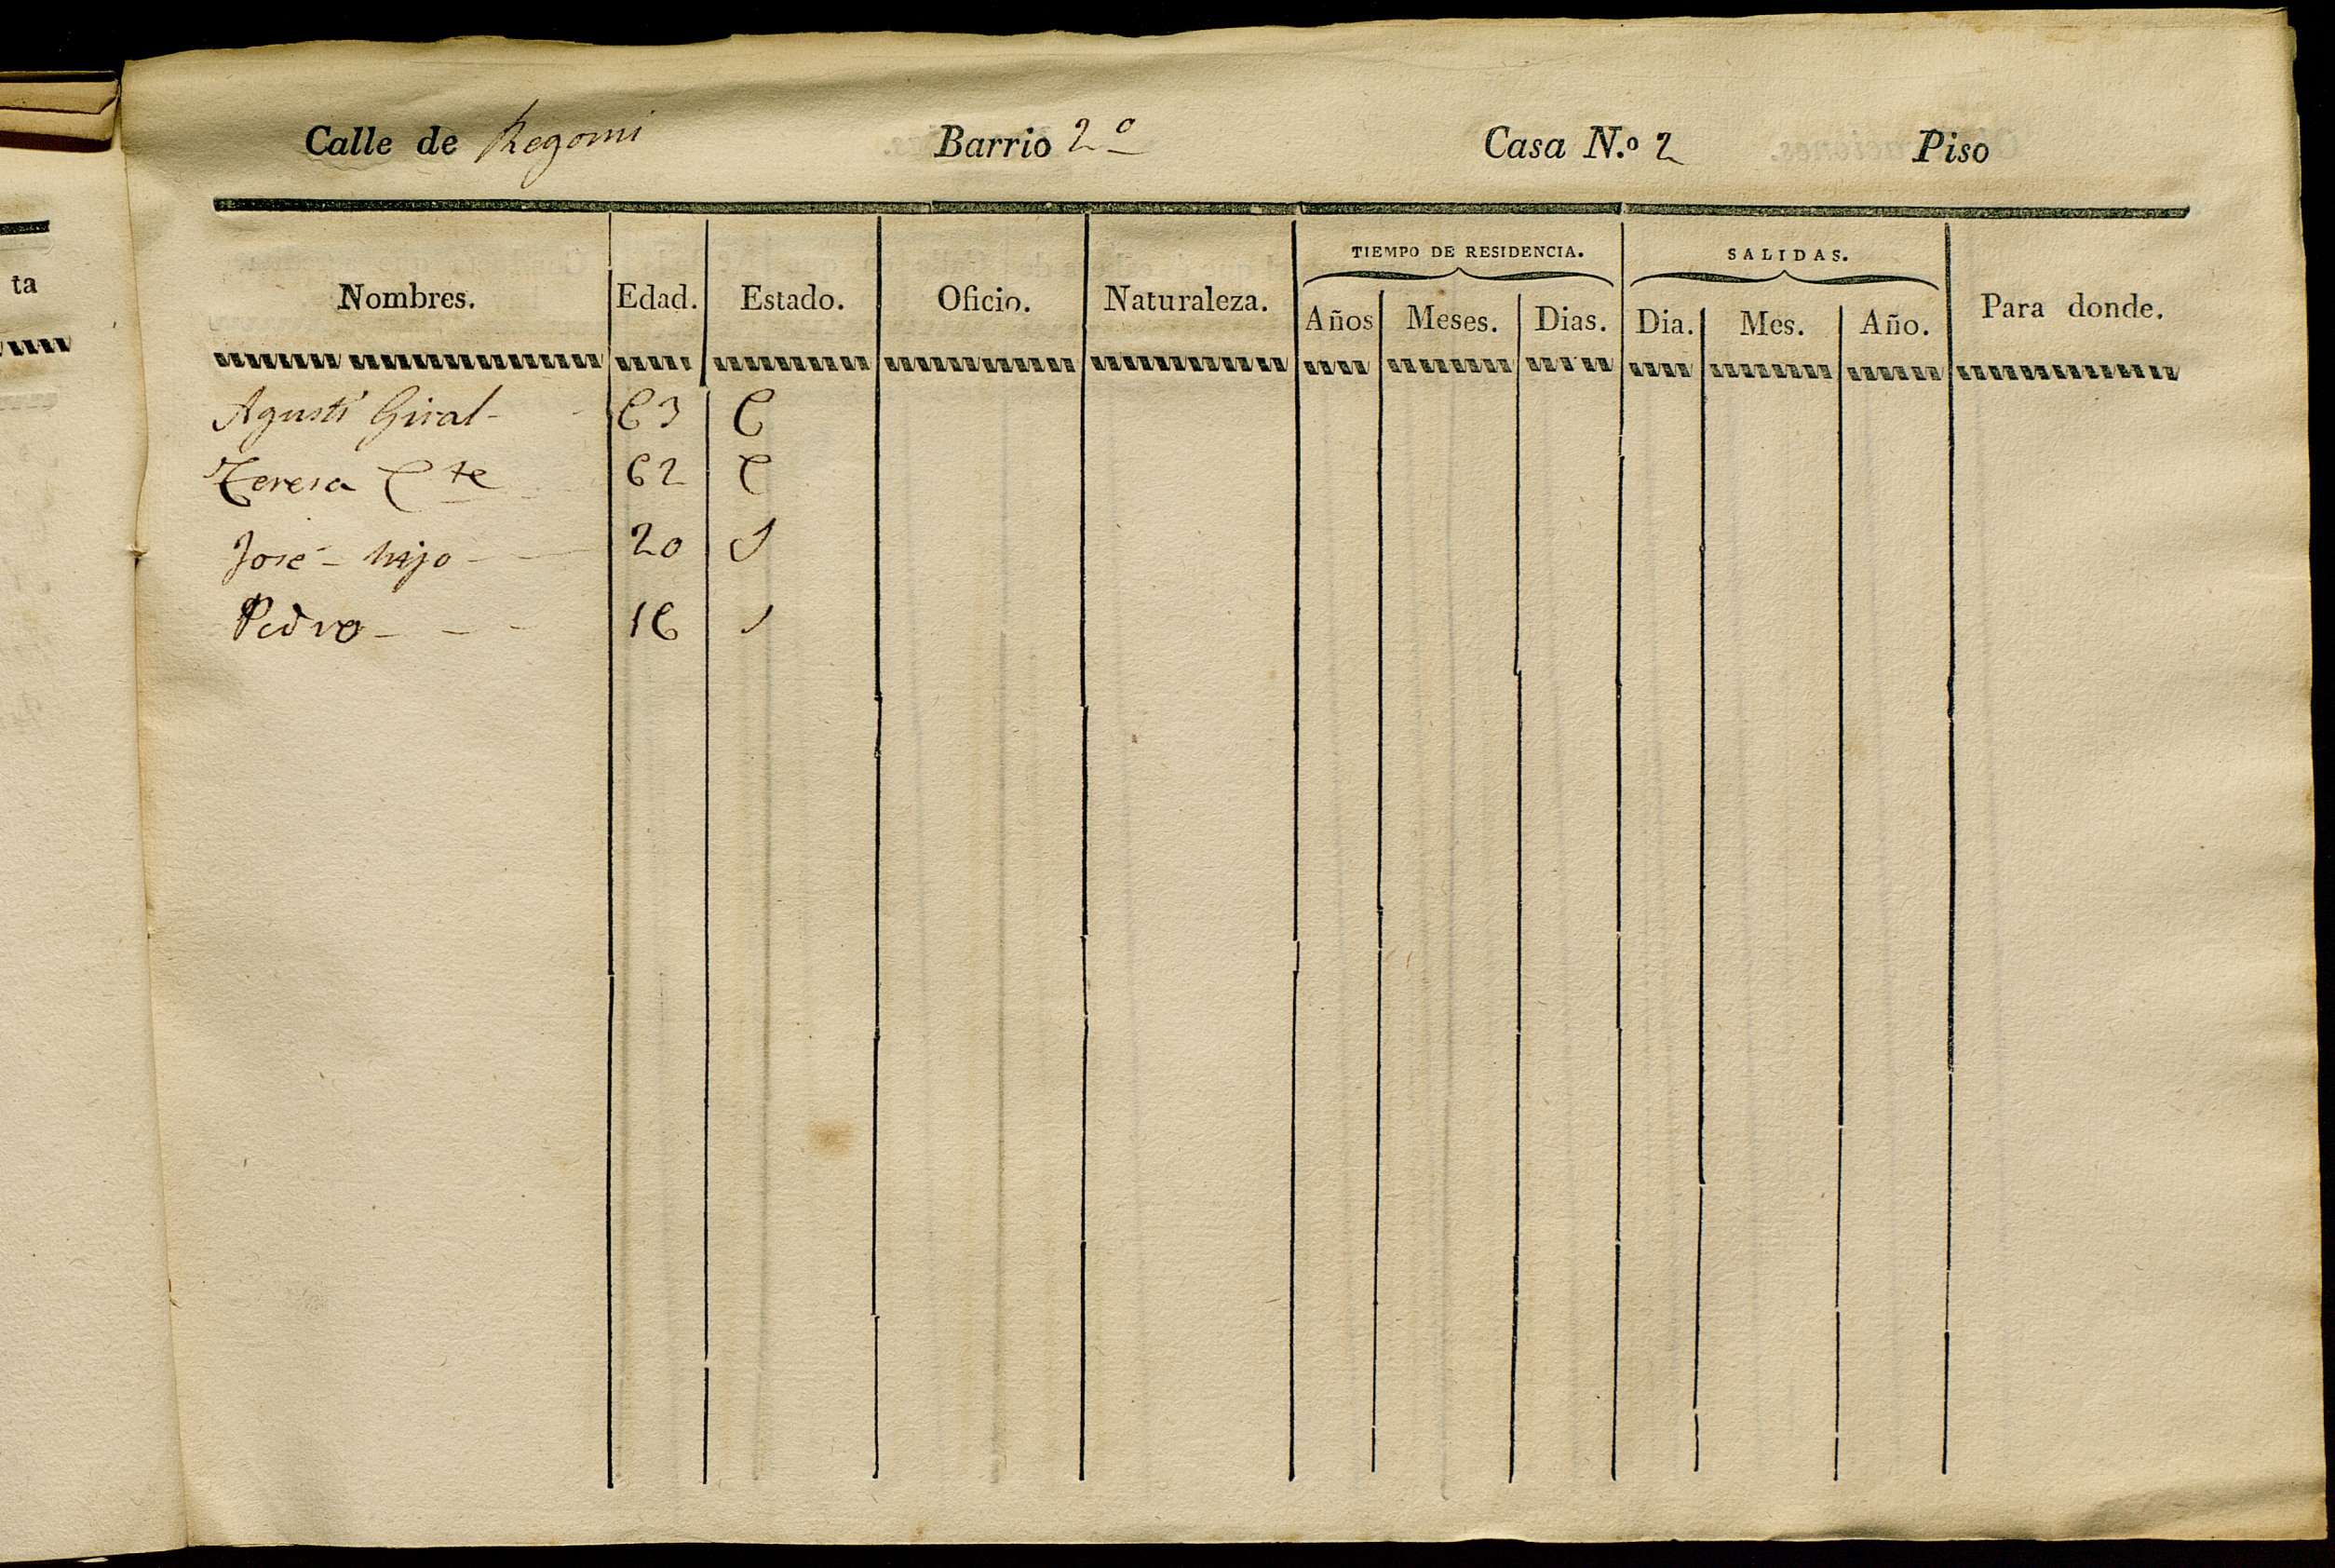 Calle de Regomi Barrio 2º Casa N.º 2 Piso
ta
TIEMPO DE RESIDENCIA. SALIDAS.
Nombres. Edad. Estado. Oficio. Naturaleza. Años Meses. Dias. Dia. Mes. Año. Para donde.
Agustí Giral - 63 C
Teresa Cte 62 C
José - hijo - 20 S
Pedro - - - 16 S